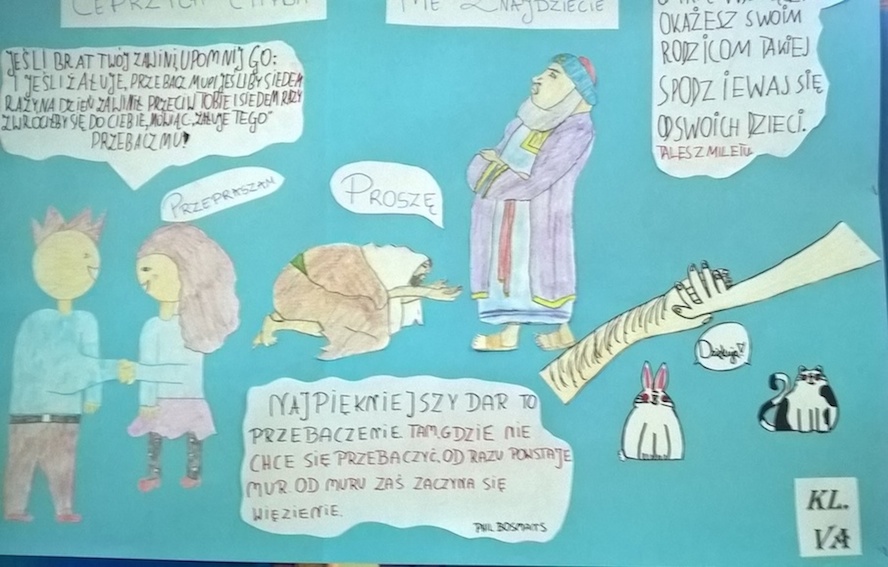 NIE ZNAJDZIECIE
OKAŻESZ SWOIM
RODZICOM TAKIEJ
SPODZIEWAJ SIĘ
OD SWOICH DZIECI.
TALES Z MILETU
JEŚLI BRAT TWÓJ ZAWINI, UPOMNIJ GO:
I JEŚLI ŻAŁUJE, PRZEBACZ MU! I JEŚLIBY SIEDEM
RAZY NA DZIEŃ ZAWINIŁ PRZECIW TOBIE I SIEDEM RAZY
ZWRÓCIŁBY SIĘ DO CIEBIE, MÓWIĄC: "ŻAŁUJĘ TEGO"
PRZEBACZ MU!
PRZEPRASZAM
PROSZĘ
Dziękuję!
NAJPIĘKNIEJSZY DAR TO
PRZEBACZENIE. TAM, GDZIE NIE
CHCE SIĘ PRZEBACZYĆ, OD RAZU POWSTAJE
MUR. OD MURU ZAŚ ZACZYNA SIĘ
WIĘZIENIE.
PHIL BOSMANS
KL.
VA